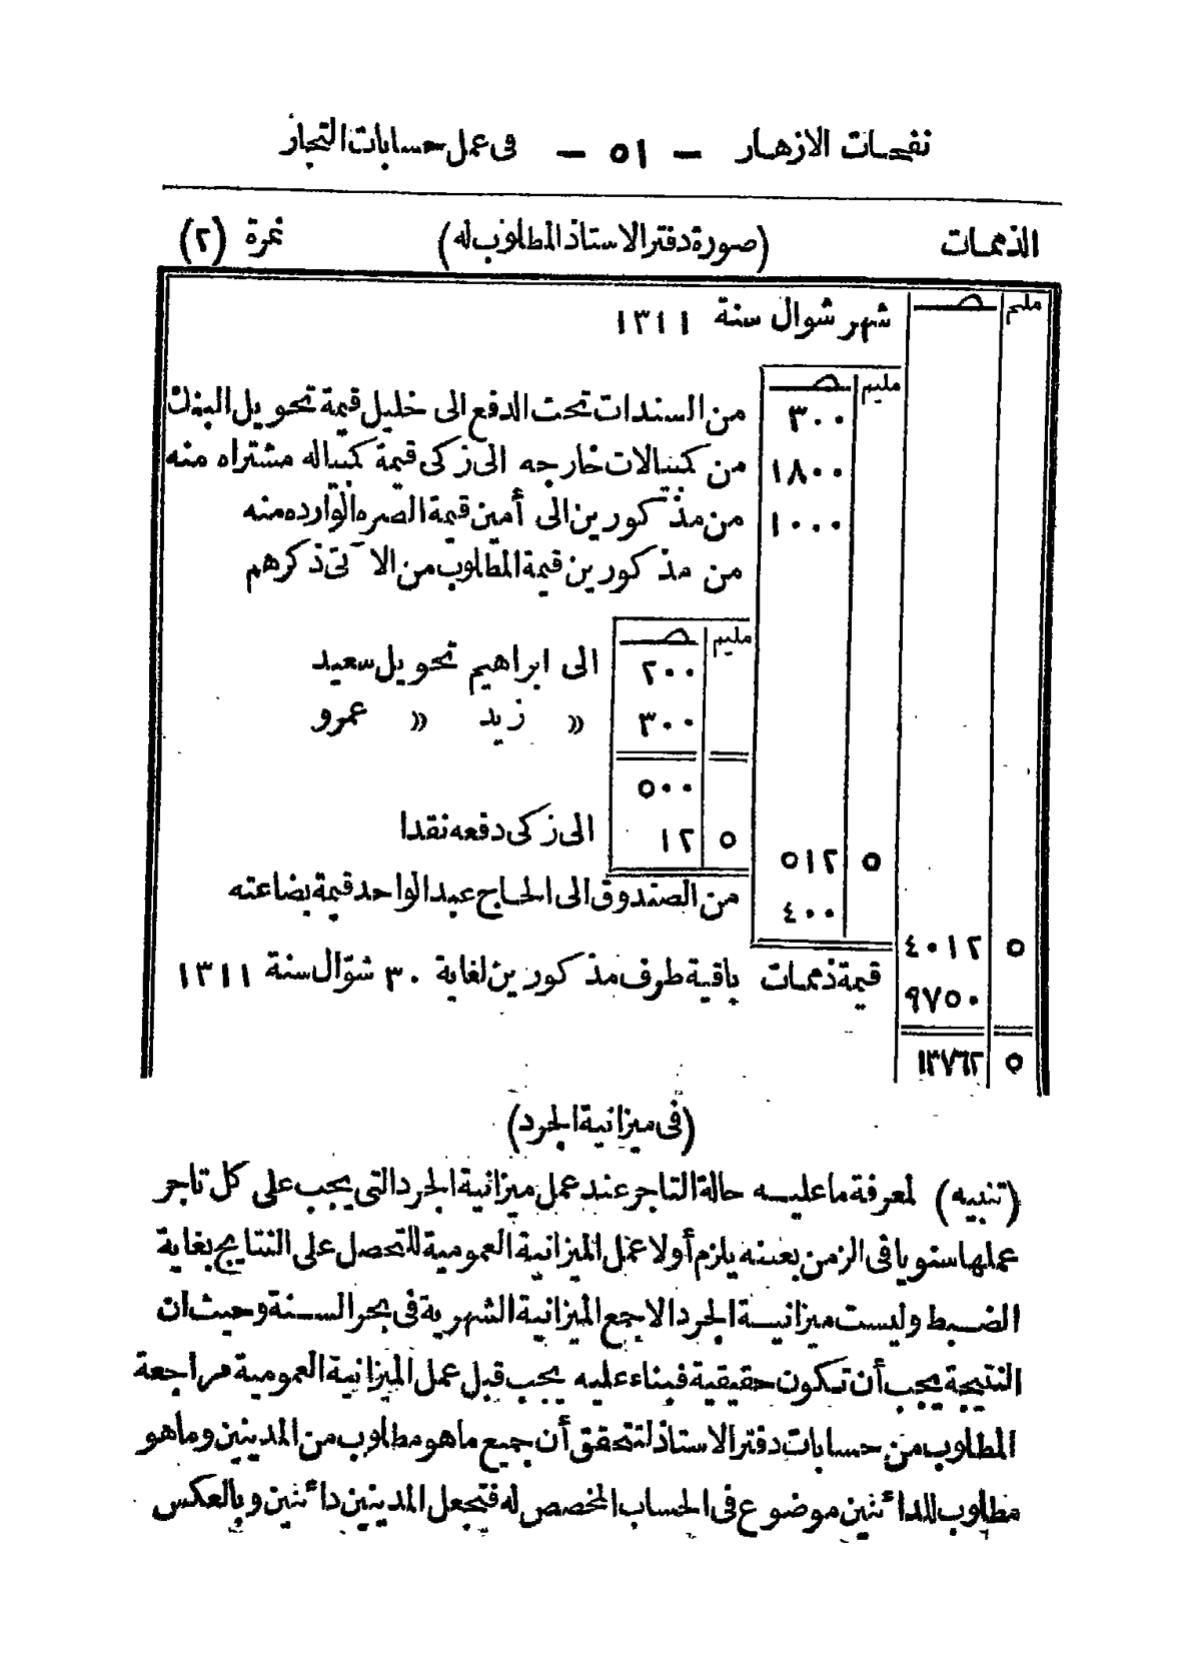 نفحات الازهار — ٥١ — فى عمل حسابات التجار
الذممات (صورة دفتر الاستاذ المطلوب له) نمرة (٢)
مليم صـ
شهر شوال سنة ١٣١١
مليم صـ
٣٠٠ من السندات تحت الدفع الى خليل قيمة تحويل البنك
١٨٠٠ من كمبيالات خارجه الى زكى قيمة كمبياله مشتراه منه
١٠٠٠ من مذكورين الى أمين قيمة الصره الوارده منه
من مذكورين قيمة المطلوب من الآتى ذكرهم
مليم صـ
٢٠٠ الى ابراهيم تحويل سعيد
٣٠٠ » زيد » عمرو
٥٠٠
٥ ١٢ الى زكى دفعه نقدا
٥ ٥١٢
٤٠٠ من الصندوق الى الحاج عبد الواحد قيمة بضاعته
٥ ٤٠١٢
٩٧٥٠ قيمة ذممات باقية طرف مذكورين لغاية ٣٠ شوّال سنة ١٣١١
٥ ١٣٧٦٢
(فى ميزانية الجرد)
(تنبيه) لمعرفة ما عليه حالة التاجر عند عمل ميزانية الجرد التى يجب على كل تاجر
عملها سنويا فى الزمن بعينه يلزم أولا عمل الميزانية العمومية للتحصل على النتايج بغاية
الضبط وليست ميزانية الجرد الاجمع الميزانية الشهرية فى بحر السنة وحيث ان
النتيجة يجب أن تكون حقيقية فبناء عليه يجب قبل عمل الميزانية العمومية مراجعة
المطلوب من حسابات دفتر الاستاذ لتتحقق أن جميع ما هو مطلوب من المدينين وما هو
مطلوب للدائنين موضوع فى الحساب المخصص له فتجعل المدينين دائنين وبالعكس